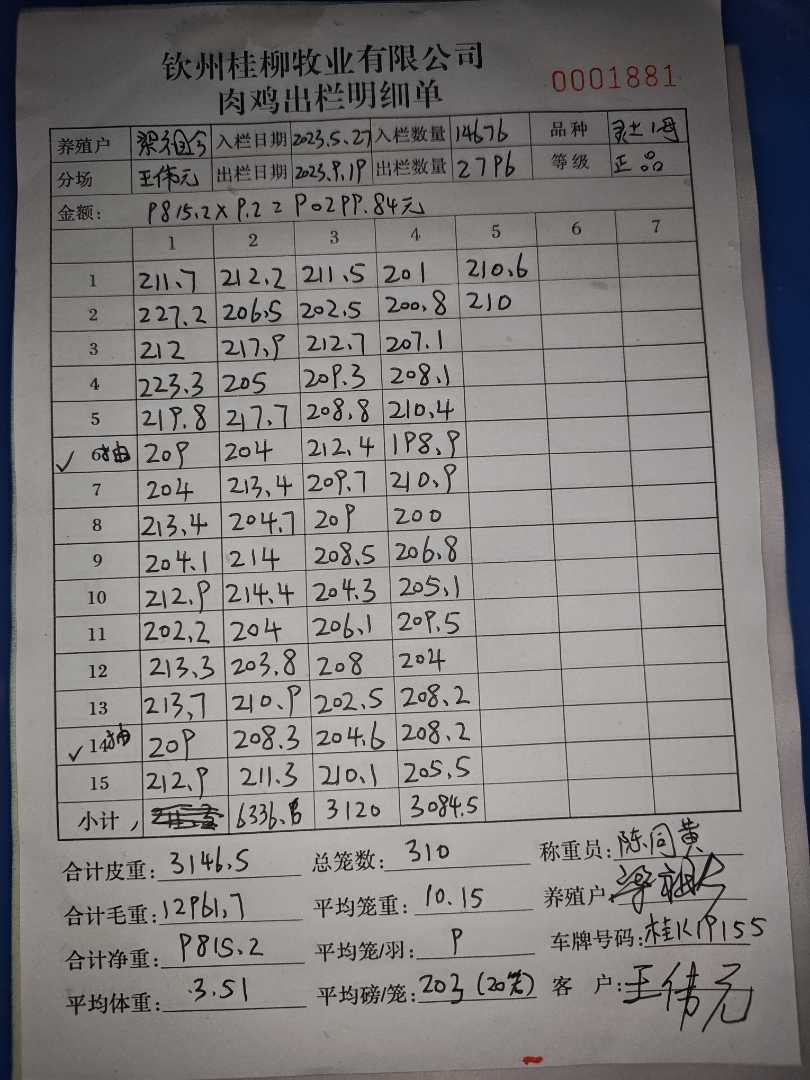 钦州桂柳牧业有限公司
肉鸡出栏明细单 0001881
养殖户 梁祖兮 入栏日期 2023.5.27 入栏数量 14676 品种 灵土1母
分场 王伟元 出栏日期 2023.9.19 出栏数量 2796 等级 正品
金额: 9815.2×9.2=90299.84元
1 2 3 4 5 6 7
1 211.7 212.2 211.5 201 210.6
2 227.2 206.5 202.5 200.8 210
3 212 217.9 212.7 207.1
4 223.3 205 209.3 208.1
5 219.8 217.7 208.8 210.4
✓ 6抽 209 204 212.4 198.9
7 204 213.4 209.7 210.9
8 213.4 204.7 209 200
9 204.1 214 208.5 206.8
10 212.9 214.4 204.3 205.1
11 202.2 204 206.1 209.5
12 213.3 203.8 208 204
13 213.7 210.9 202.5 208.2
✓ 14抽 209 208.3 204.6 208.2
15 212.9 211.3 210.1 205.5
小计, 6336.8 3120 3084.5
合计皮重: 3146.5 总笼数: 310 称重员: 陈同黄
合计毛重: 12961.7 平均笼重: 10.15 养殖户: 梁祖兮
合计净重: 9815.2 平均笼/羽: 9 车牌号码: 桂K19155
平均体重: 3.51 平均磅/笼: 203 (20笼) 客户: 王伟元